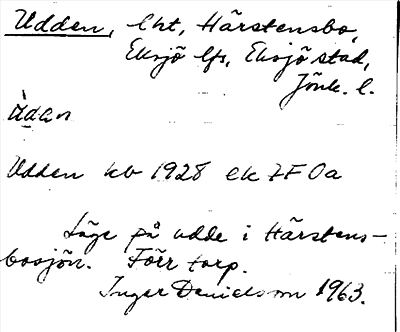 Udden, lht, Härstensbo,
Eksjö lfs, Eksjö stad,
Jönk. l.
ùdan
Udden kb 1928 ek 7F0a
Läge på udde i Härstens-
bosjön. Förr torp.
Inger Danielsson 1963.